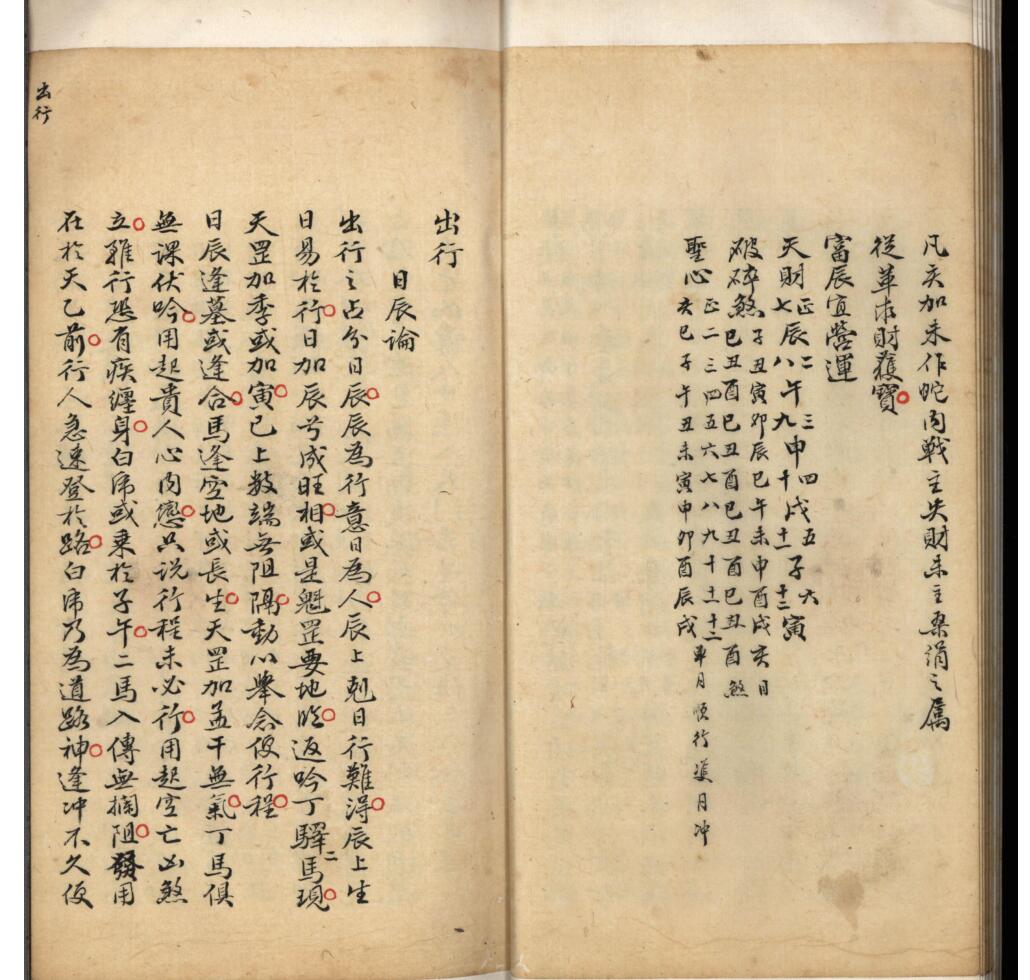 凡亥加未作蛇內戰主失財未主桑絹之屬
從革求財獲寶
富辰宜營運
天財 正七辰 二八午 三九申 四十戌 五十一子 六十二寅
破碎煞 子丑寅卯辰巳午未申酉戌亥日
巳丑酉巳丑酉巳丑酉巳丑酉煞
聖心 正二三四五六七八九十十一十二
亥巳子午丑未寅申卯酉辰戌 單月順行雙月冲
出行
日辰論
出行之占分日辰辰為行意日為人辰上剋日行難得辰上生
日易於行日加辰兮成旺相或是魁罡要地臨返吟丁驛二馬現
天罡加季或加寅已上數端無阻隔動心舉念便行程
日辰逢墓或逢合馬逢空地或長生天罡加孟干無氣丁馬俱
無課伏吟用起貴人心內戀只説行程未必行用起空亡凶煞
立雖行恐有疾纏身白虎或乘於子午二馬入傳無攔阻發用
在於天乙前行人急速登於路白虎乃為道路神逢冲不久便
出行